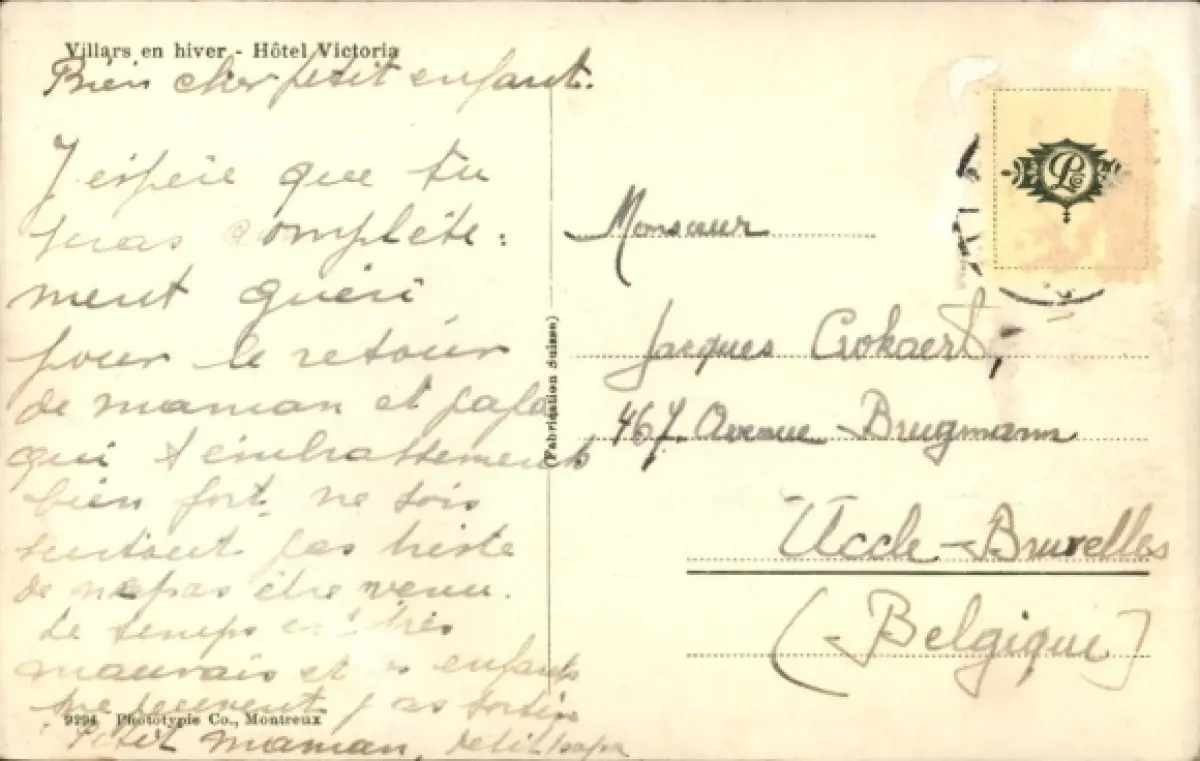 Villars en hiver - Hôtel Victoria
Bien cher petit enfant.
J'espère que tu
seras complète-
ment guéri
pour le retour
de maman et papa
qui t'embrassent
bien fort. ne sois
surtout pas triste
de ne pas être venu.
Le temps est très
mauvais et les enfants
ne peuvent pas sortir
9224 Phototypie Co., Montreux
Petit maman, petit papa
(Fabrication suisse)
Monsieur
Jacques Crokaert,
467. Avenue Brugmann
Uccle - Bruxelles
(Belgique)